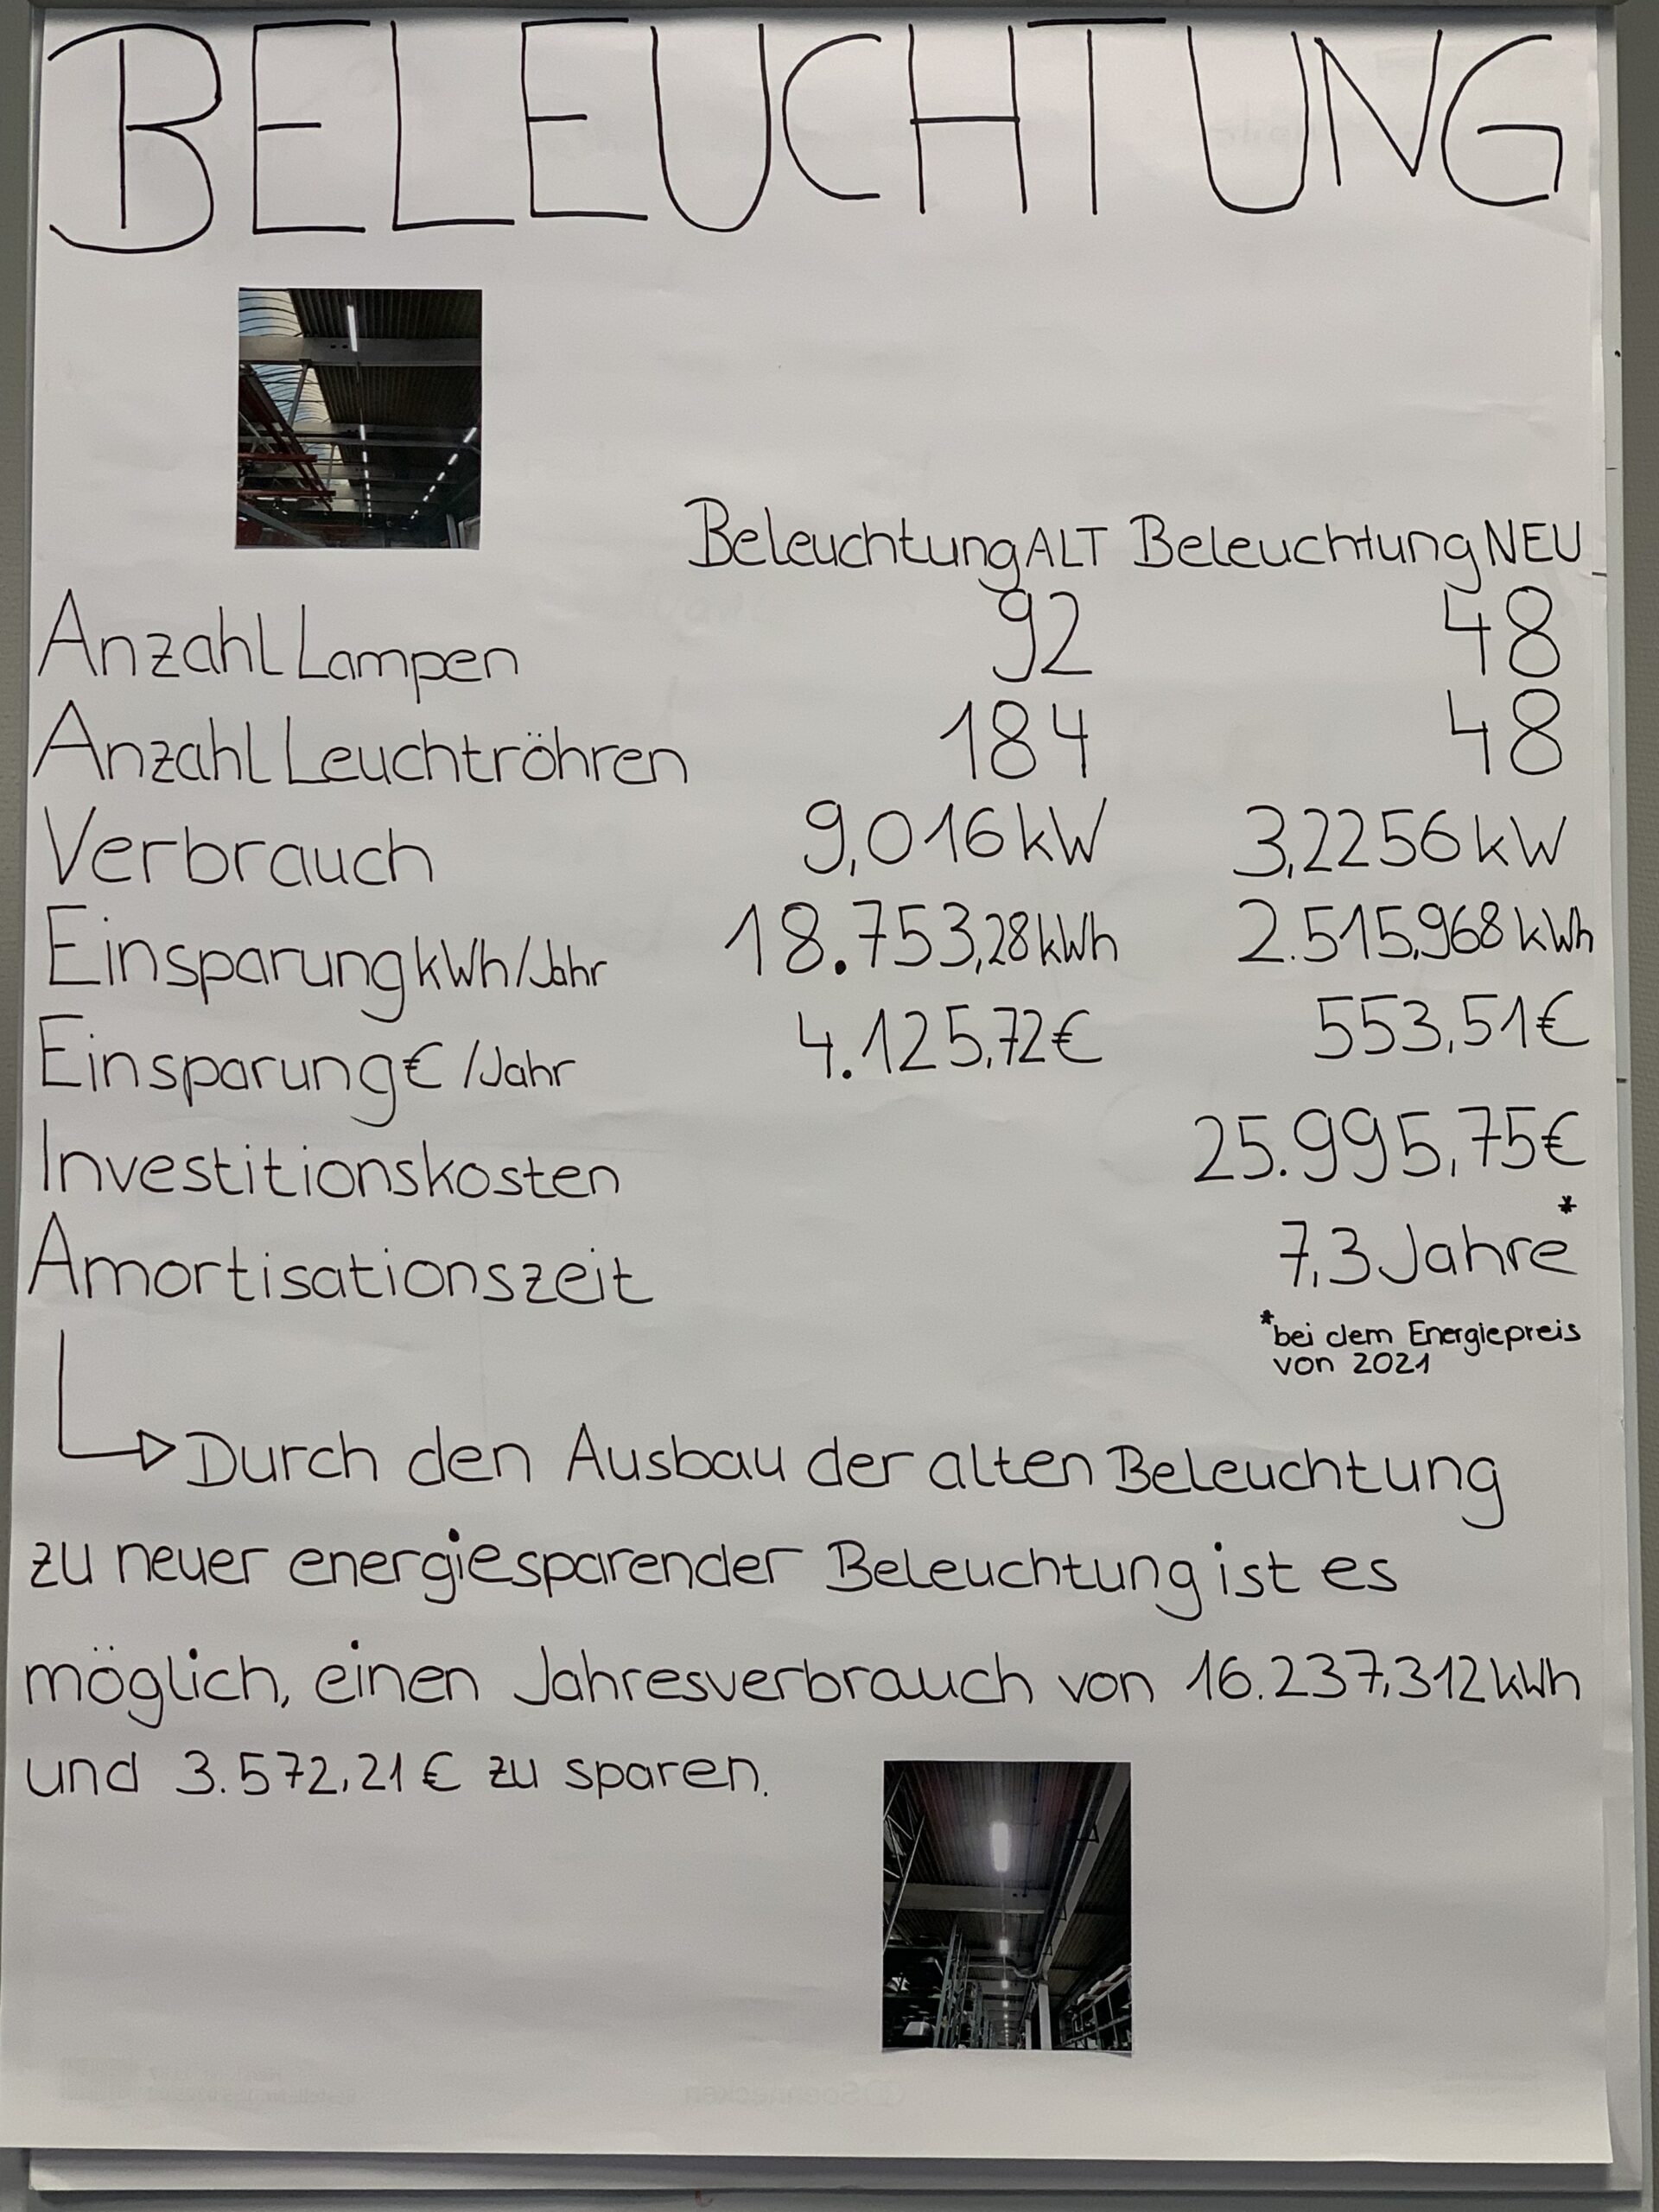 BELEUCHTUNG
Beleuchtung ALT Beleuchtung NEU
Anzahl Lampen 92 48
Anzahl Leuchtröhren 184 48
Verbrauch 9,016 kW 3,2256 kW
Einsparung kWh/Jahr 18.753,28 kWh 2.515,968 kWh
Einsparung € /Jahr 4.125,72 € 553,51 €
Investitionskosten 25.995,75 €
Amortisationszeit 7,3 Jahre*
*bei dem Energiepreis
von 2021
Durch den Ausbau der alten Beleuchtung
zu neuer energiesparender Beleuchtung ist es
möglich, einen Jahresverbrauch von 16.237,312 kWh
und 3.572,21 € zu sparen.
Soennecken